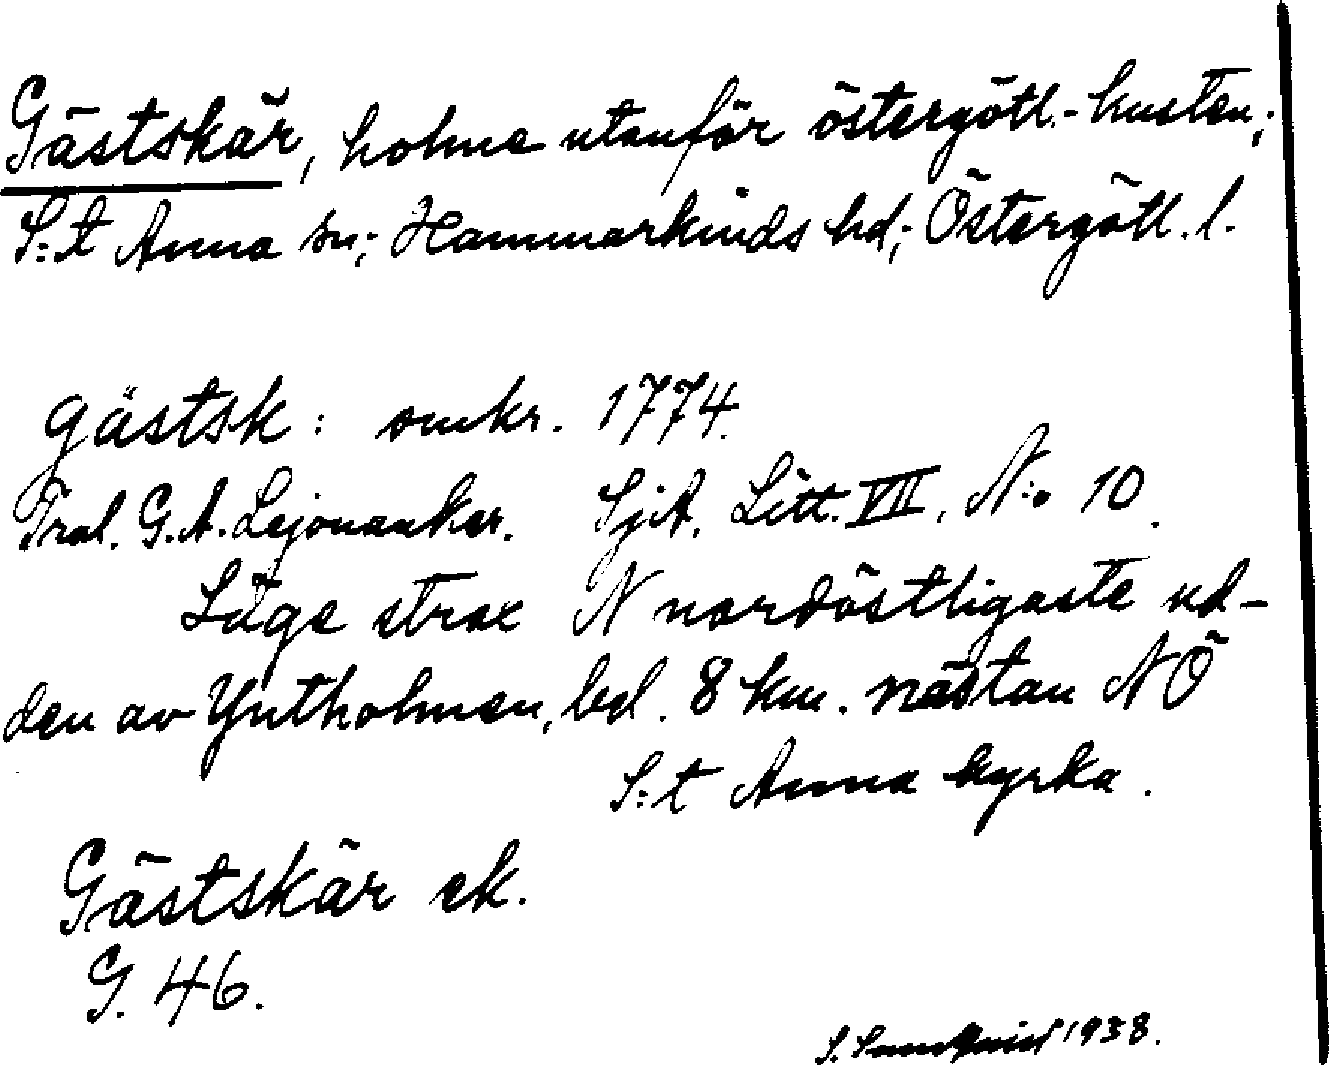 Gästskär, holme utanför östergötl.-kusten;
S:t Anna sn; Hammarkinds hd; Östergötl. l.
gästsk: omkr. 1774.
Tral. G.A. Lejonanker. SjA. Litt. VII, N:o 10.
Läge strax N nordöstligaste ud-
den av Yxtholmen, bel. 8 km. nästan NÖ
S:t Anna kyrka.
Gästskär ek.
G. 46.
S. 1938.